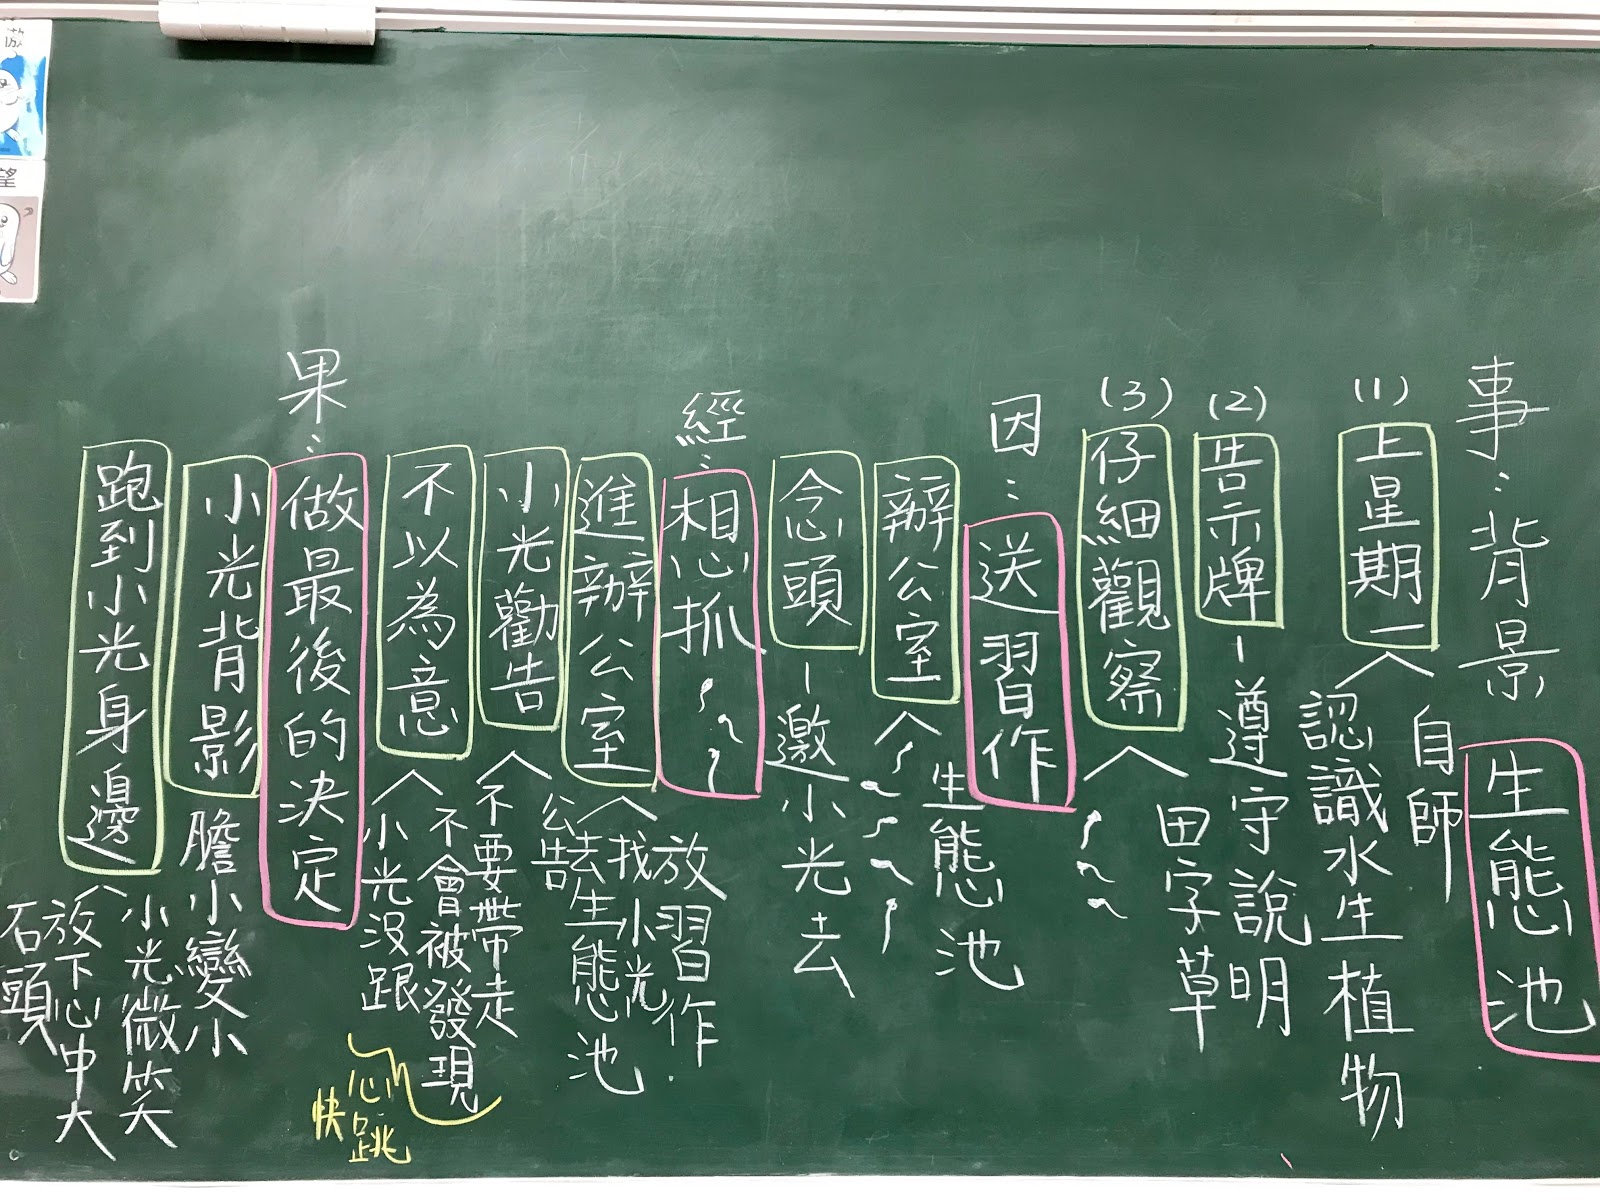 事：背景
生態池
(1)
上星期一
自師
認識水生植物
(2)
告示牌－遵守說明
(3)
仔細觀察
田字草
因：
送習作
辦公室
生態池
念頭－邀小光去
經：
相心抓
放習作
進辦公室
找小光
去生態池
公告
小光勸告
不要帶走
不會被發現
不以為意
小光沒跟
心跳
快
果：
做最後的決定
小光背影
膽小變小
跑到小光身邊
小光微笑
放下心中大
石頭
傲
望